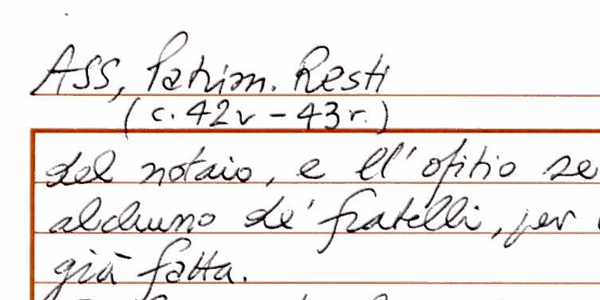 ASS, Patrim. Resti
(c. 42v - 43r.)
del notaio, e ll' ofitio se
alchuno de' fratelli, per
già fatta.